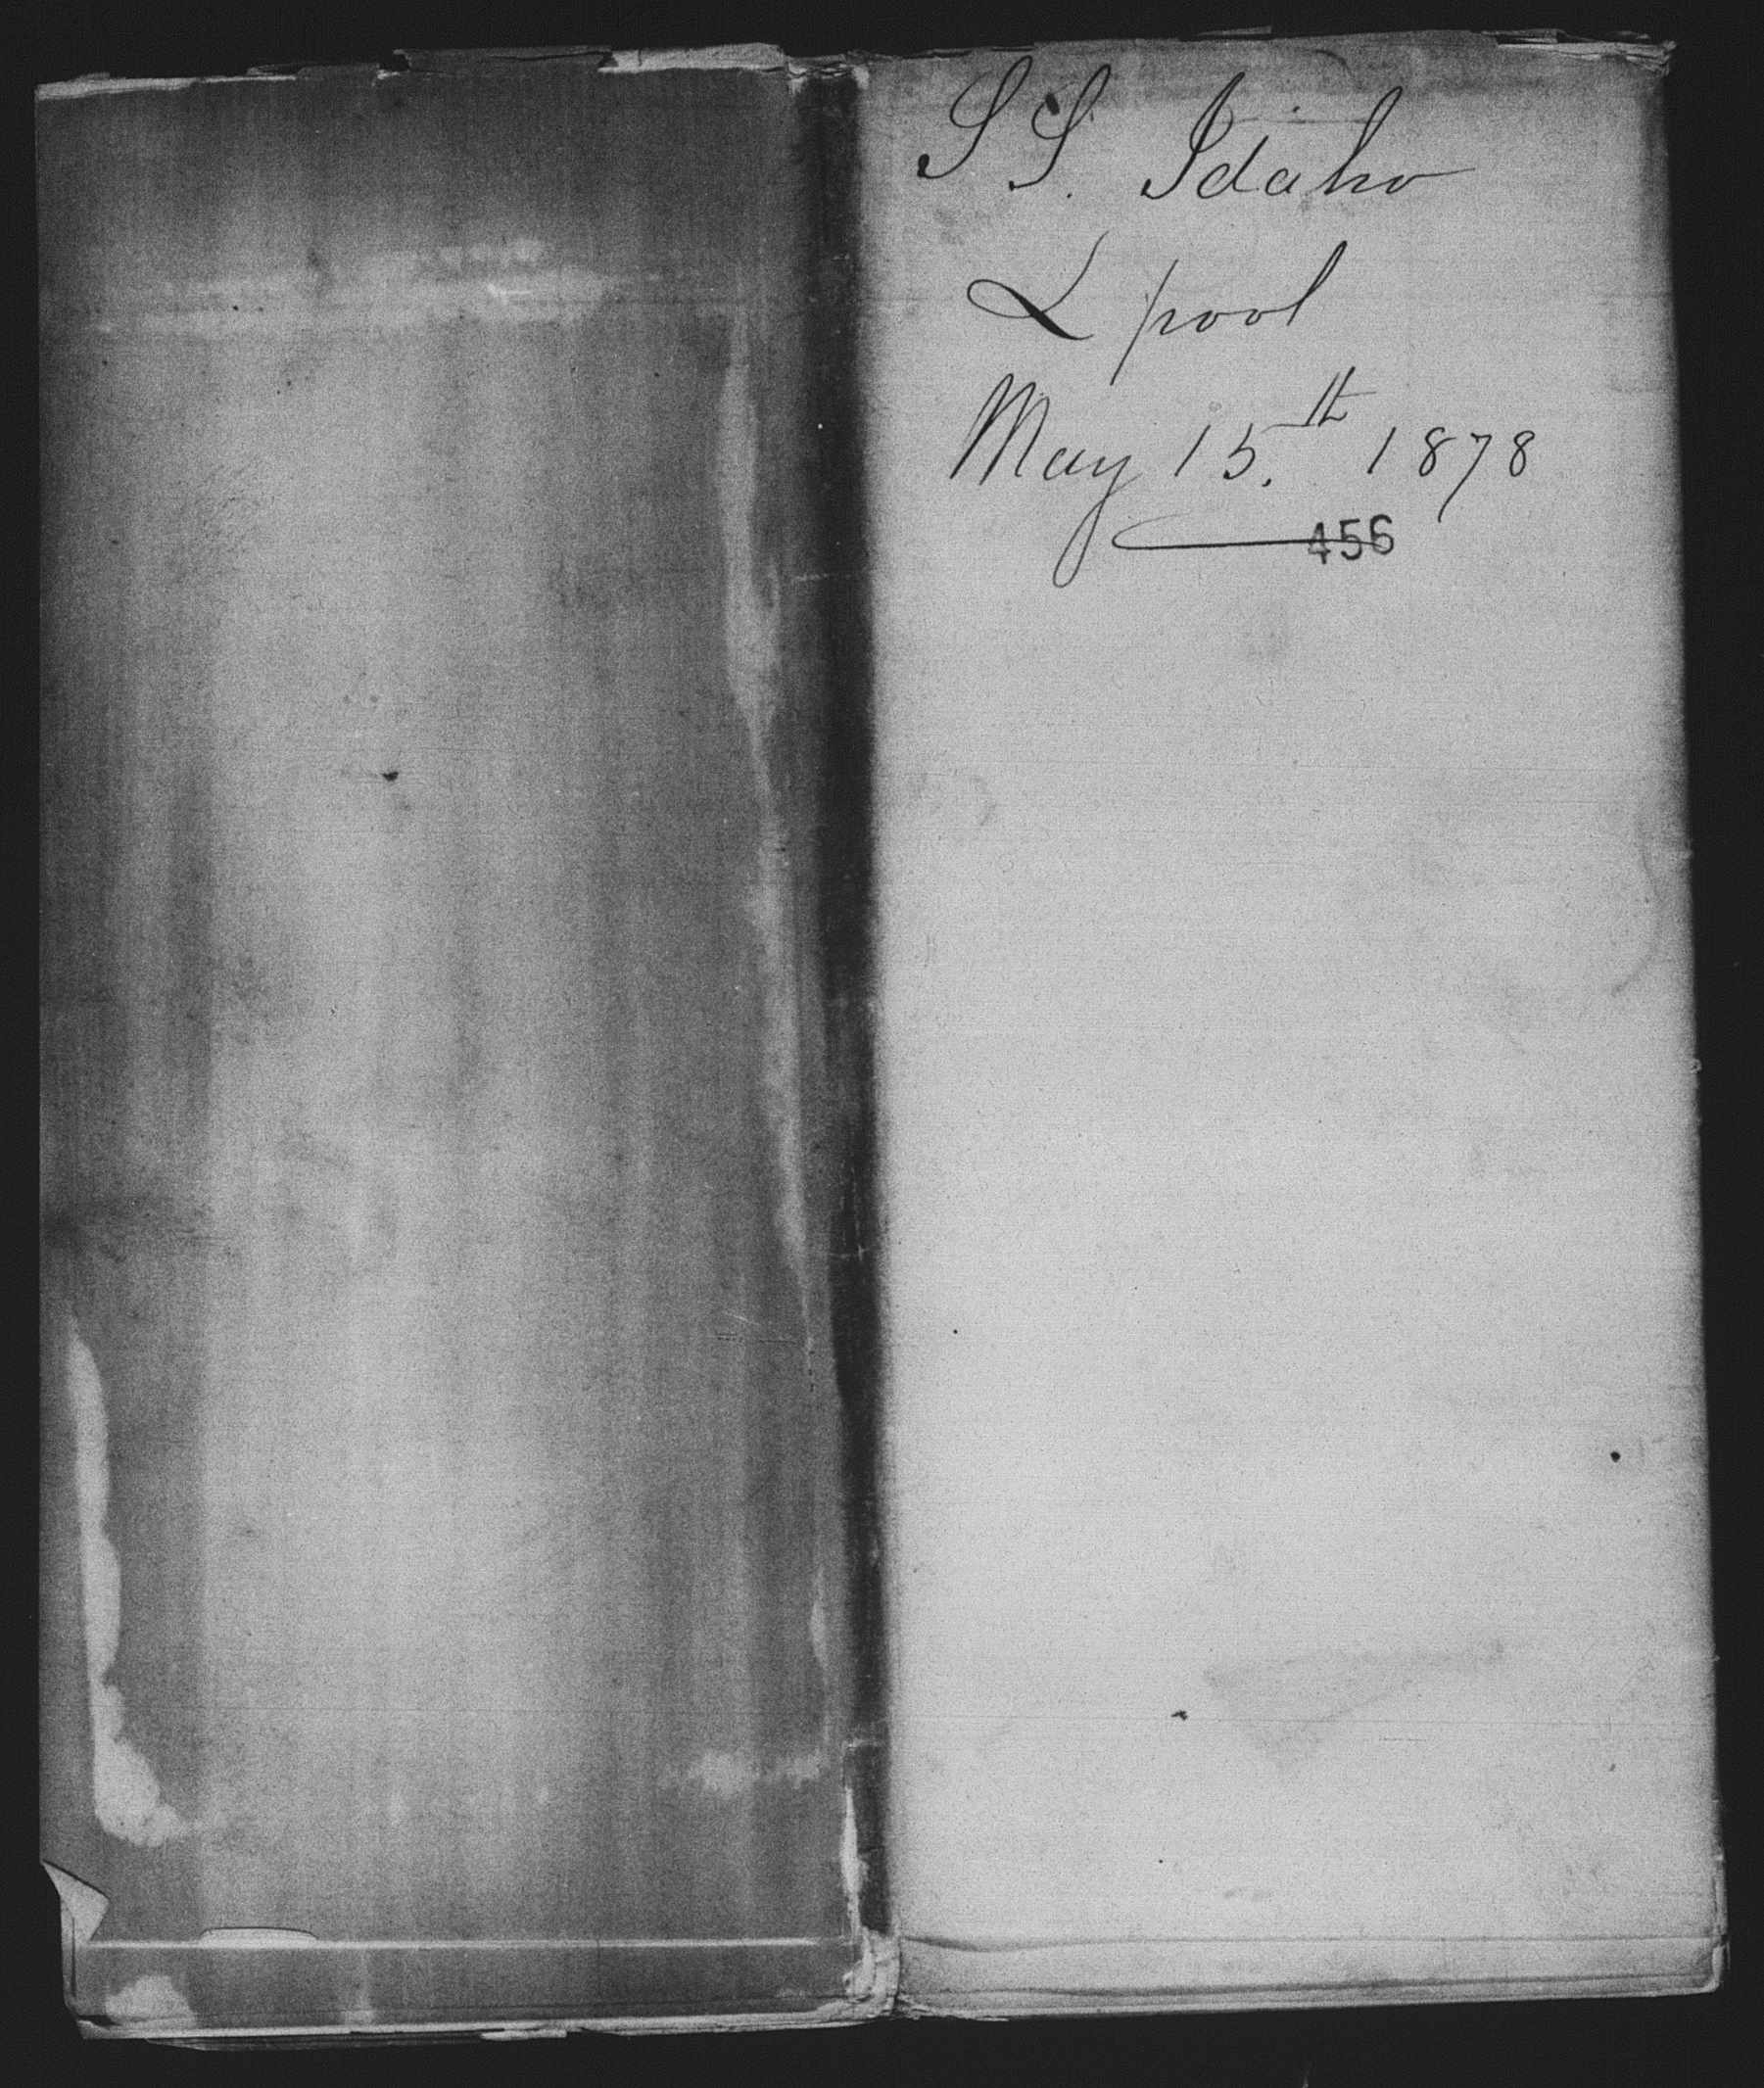 SS. Idaho
L pool
May 15.th 1878
456